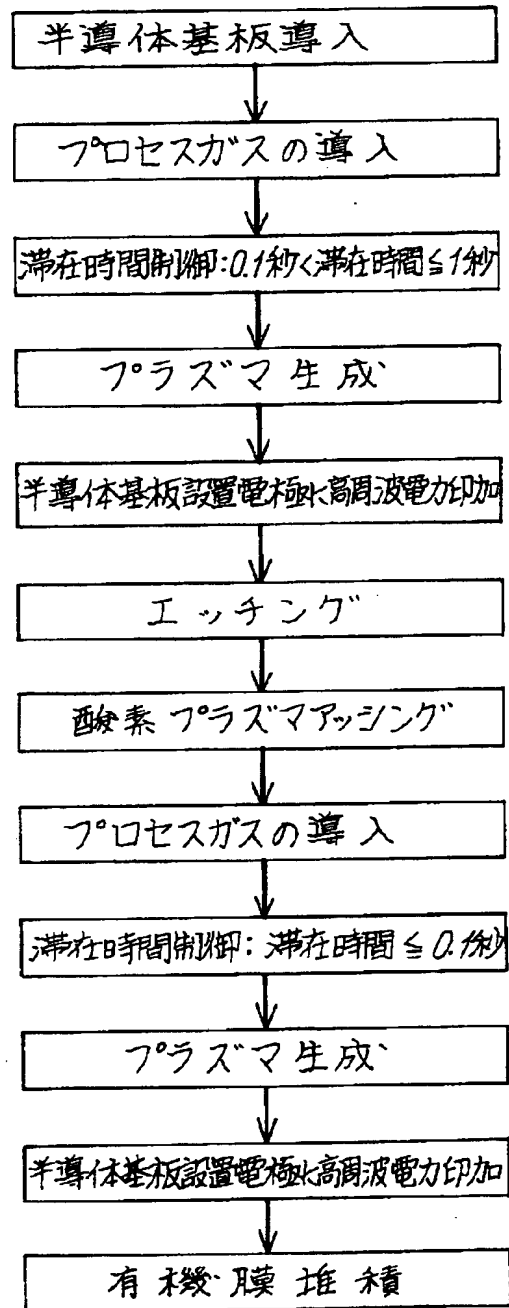 半導体基板導入
プロセスガスの導入
滞在時間制御:0.1秒<滞在時間≦1秒
プラズマ生成
半導体基板設置電極に高周波電力印加
エッチング
酸素プラズマアッシング
プロセスガスの導入
滞在時間制御:滞在時間≦0.1秒
プラズマ生成
半導体基板設置電極に高周波電力印加
有機膜堆積